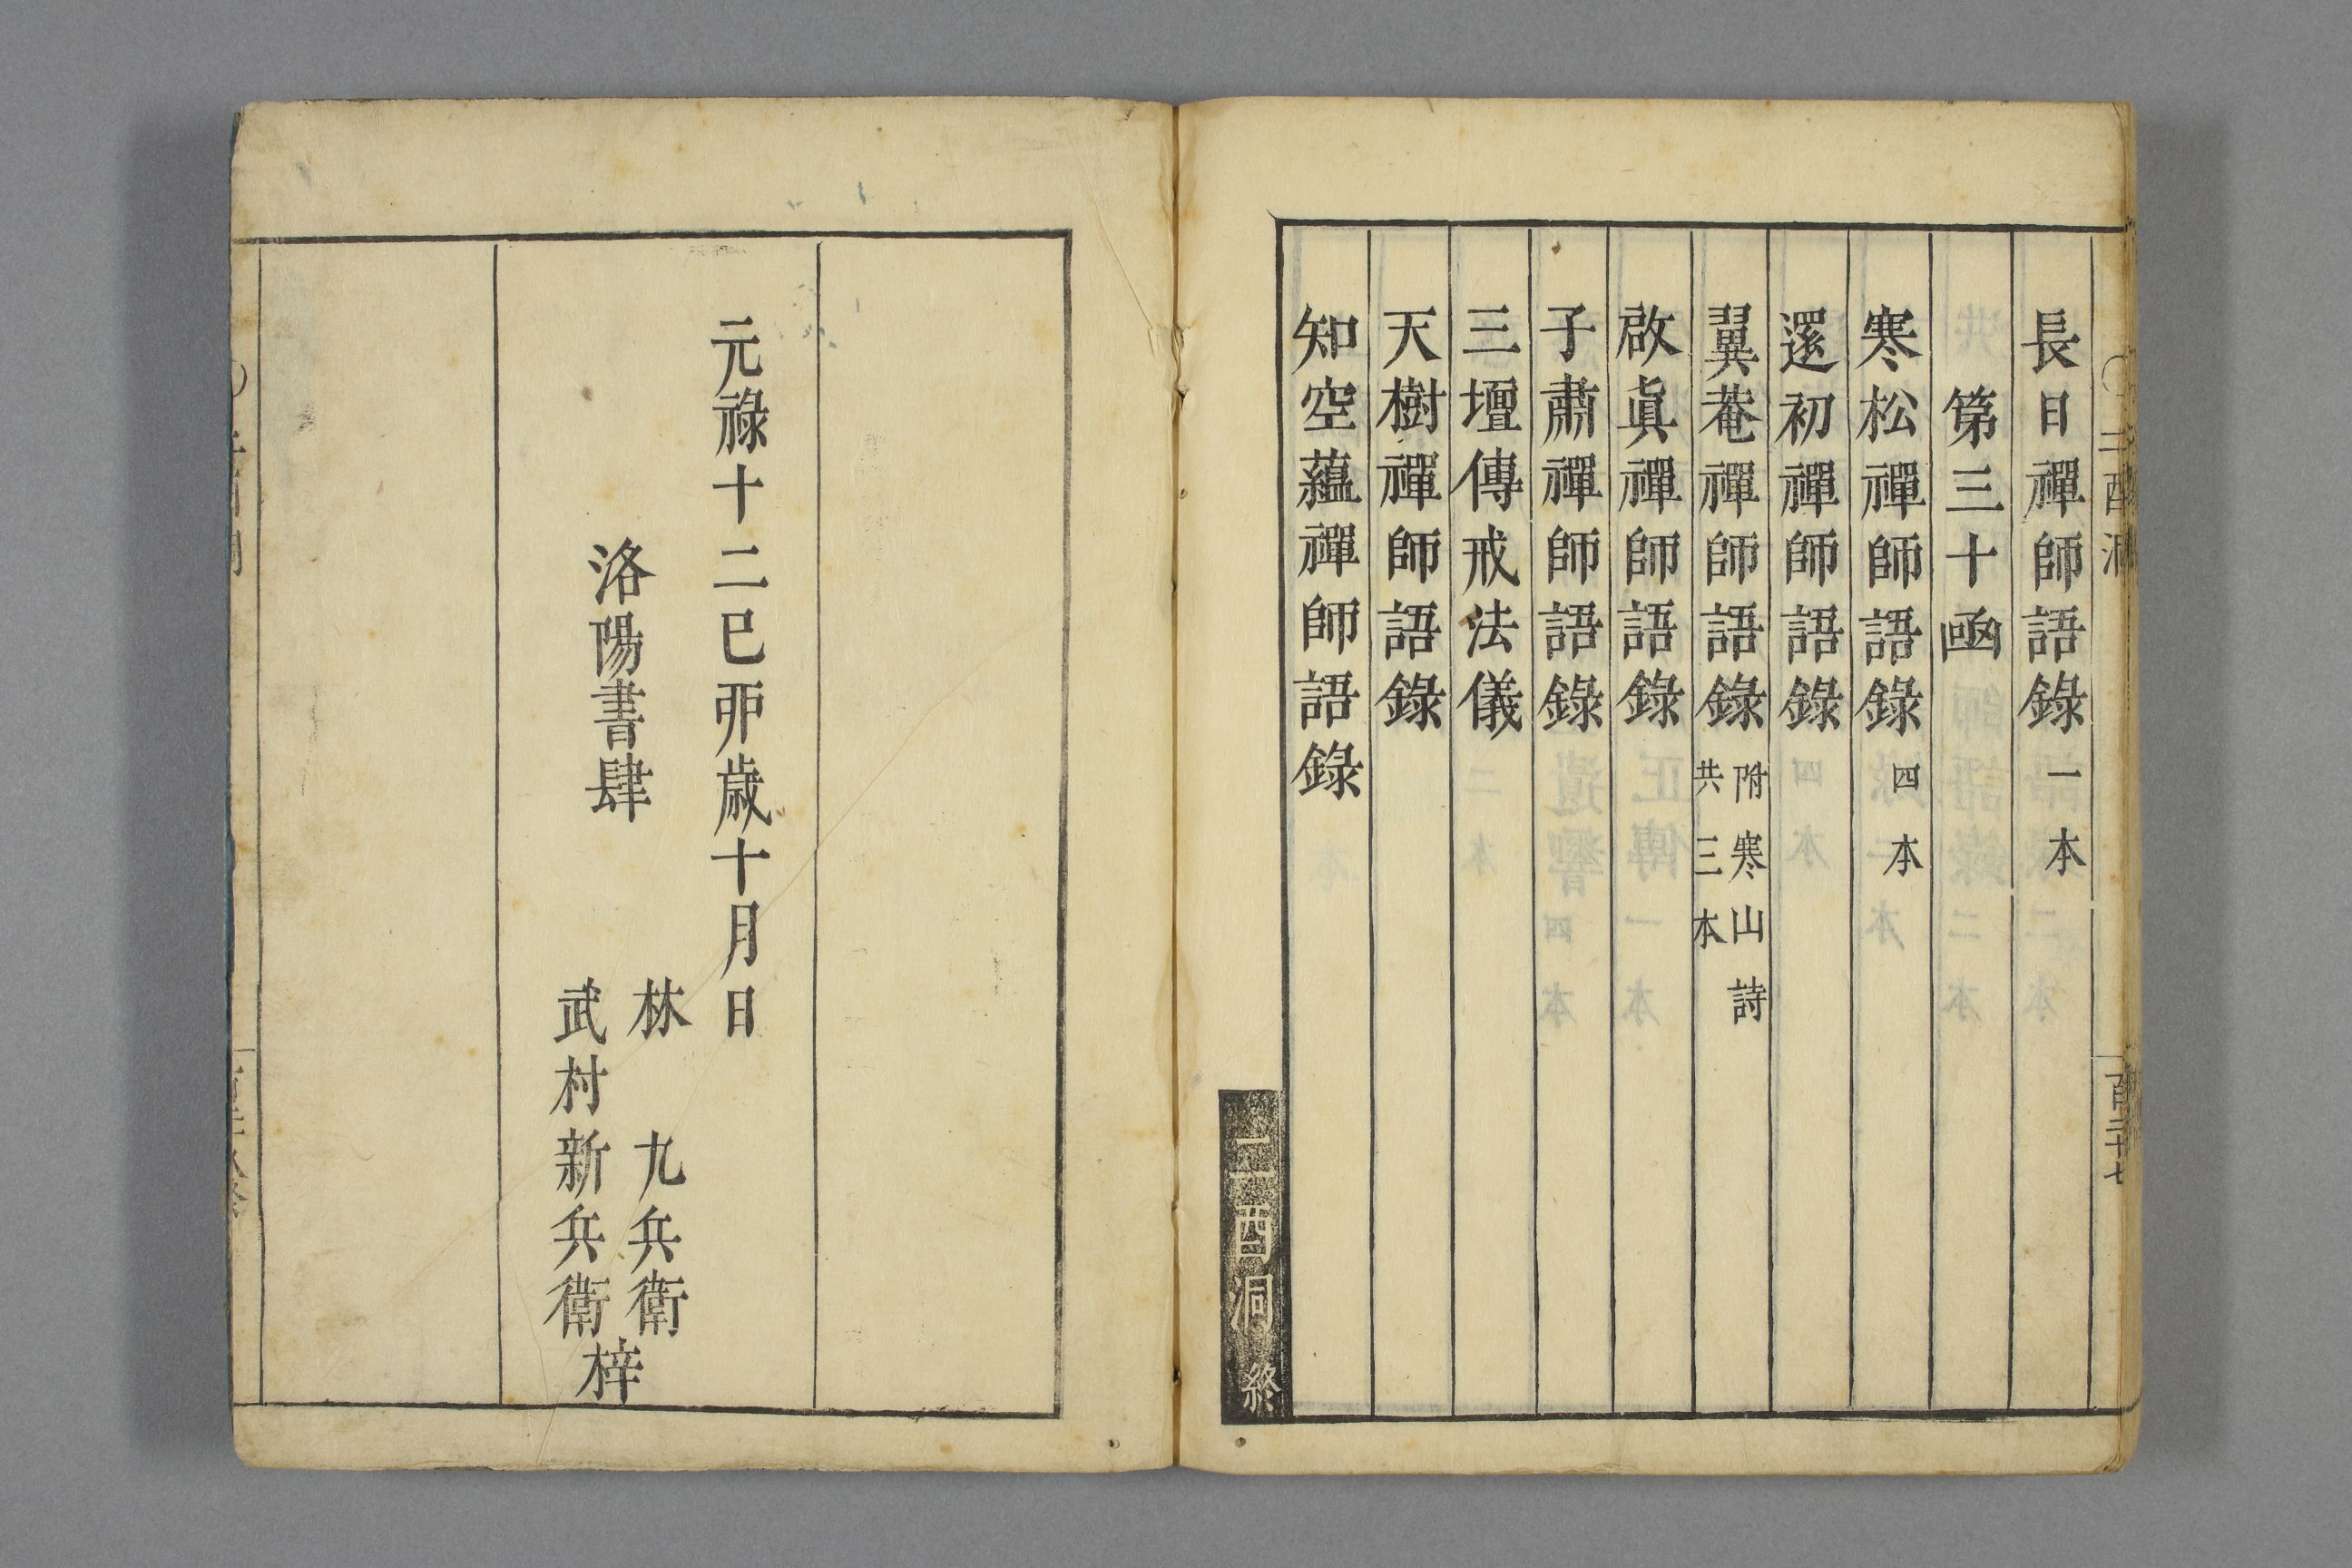 長日禪師語錄 一本
第三十凾
寒松禪師語錄 四本
邃初禪師語錄
翼菴禪師語錄 附寒山詩
共三本
啟眞禪師語錄
子肅禪師語錄
三壇傳戒法儀
天樹禪師語錄
知空蘊禪師語錄
二酉洞 終
元祿十二巳夘歲十月日
洛陽書肆
林 九兵衛
武村新兵衛
梓